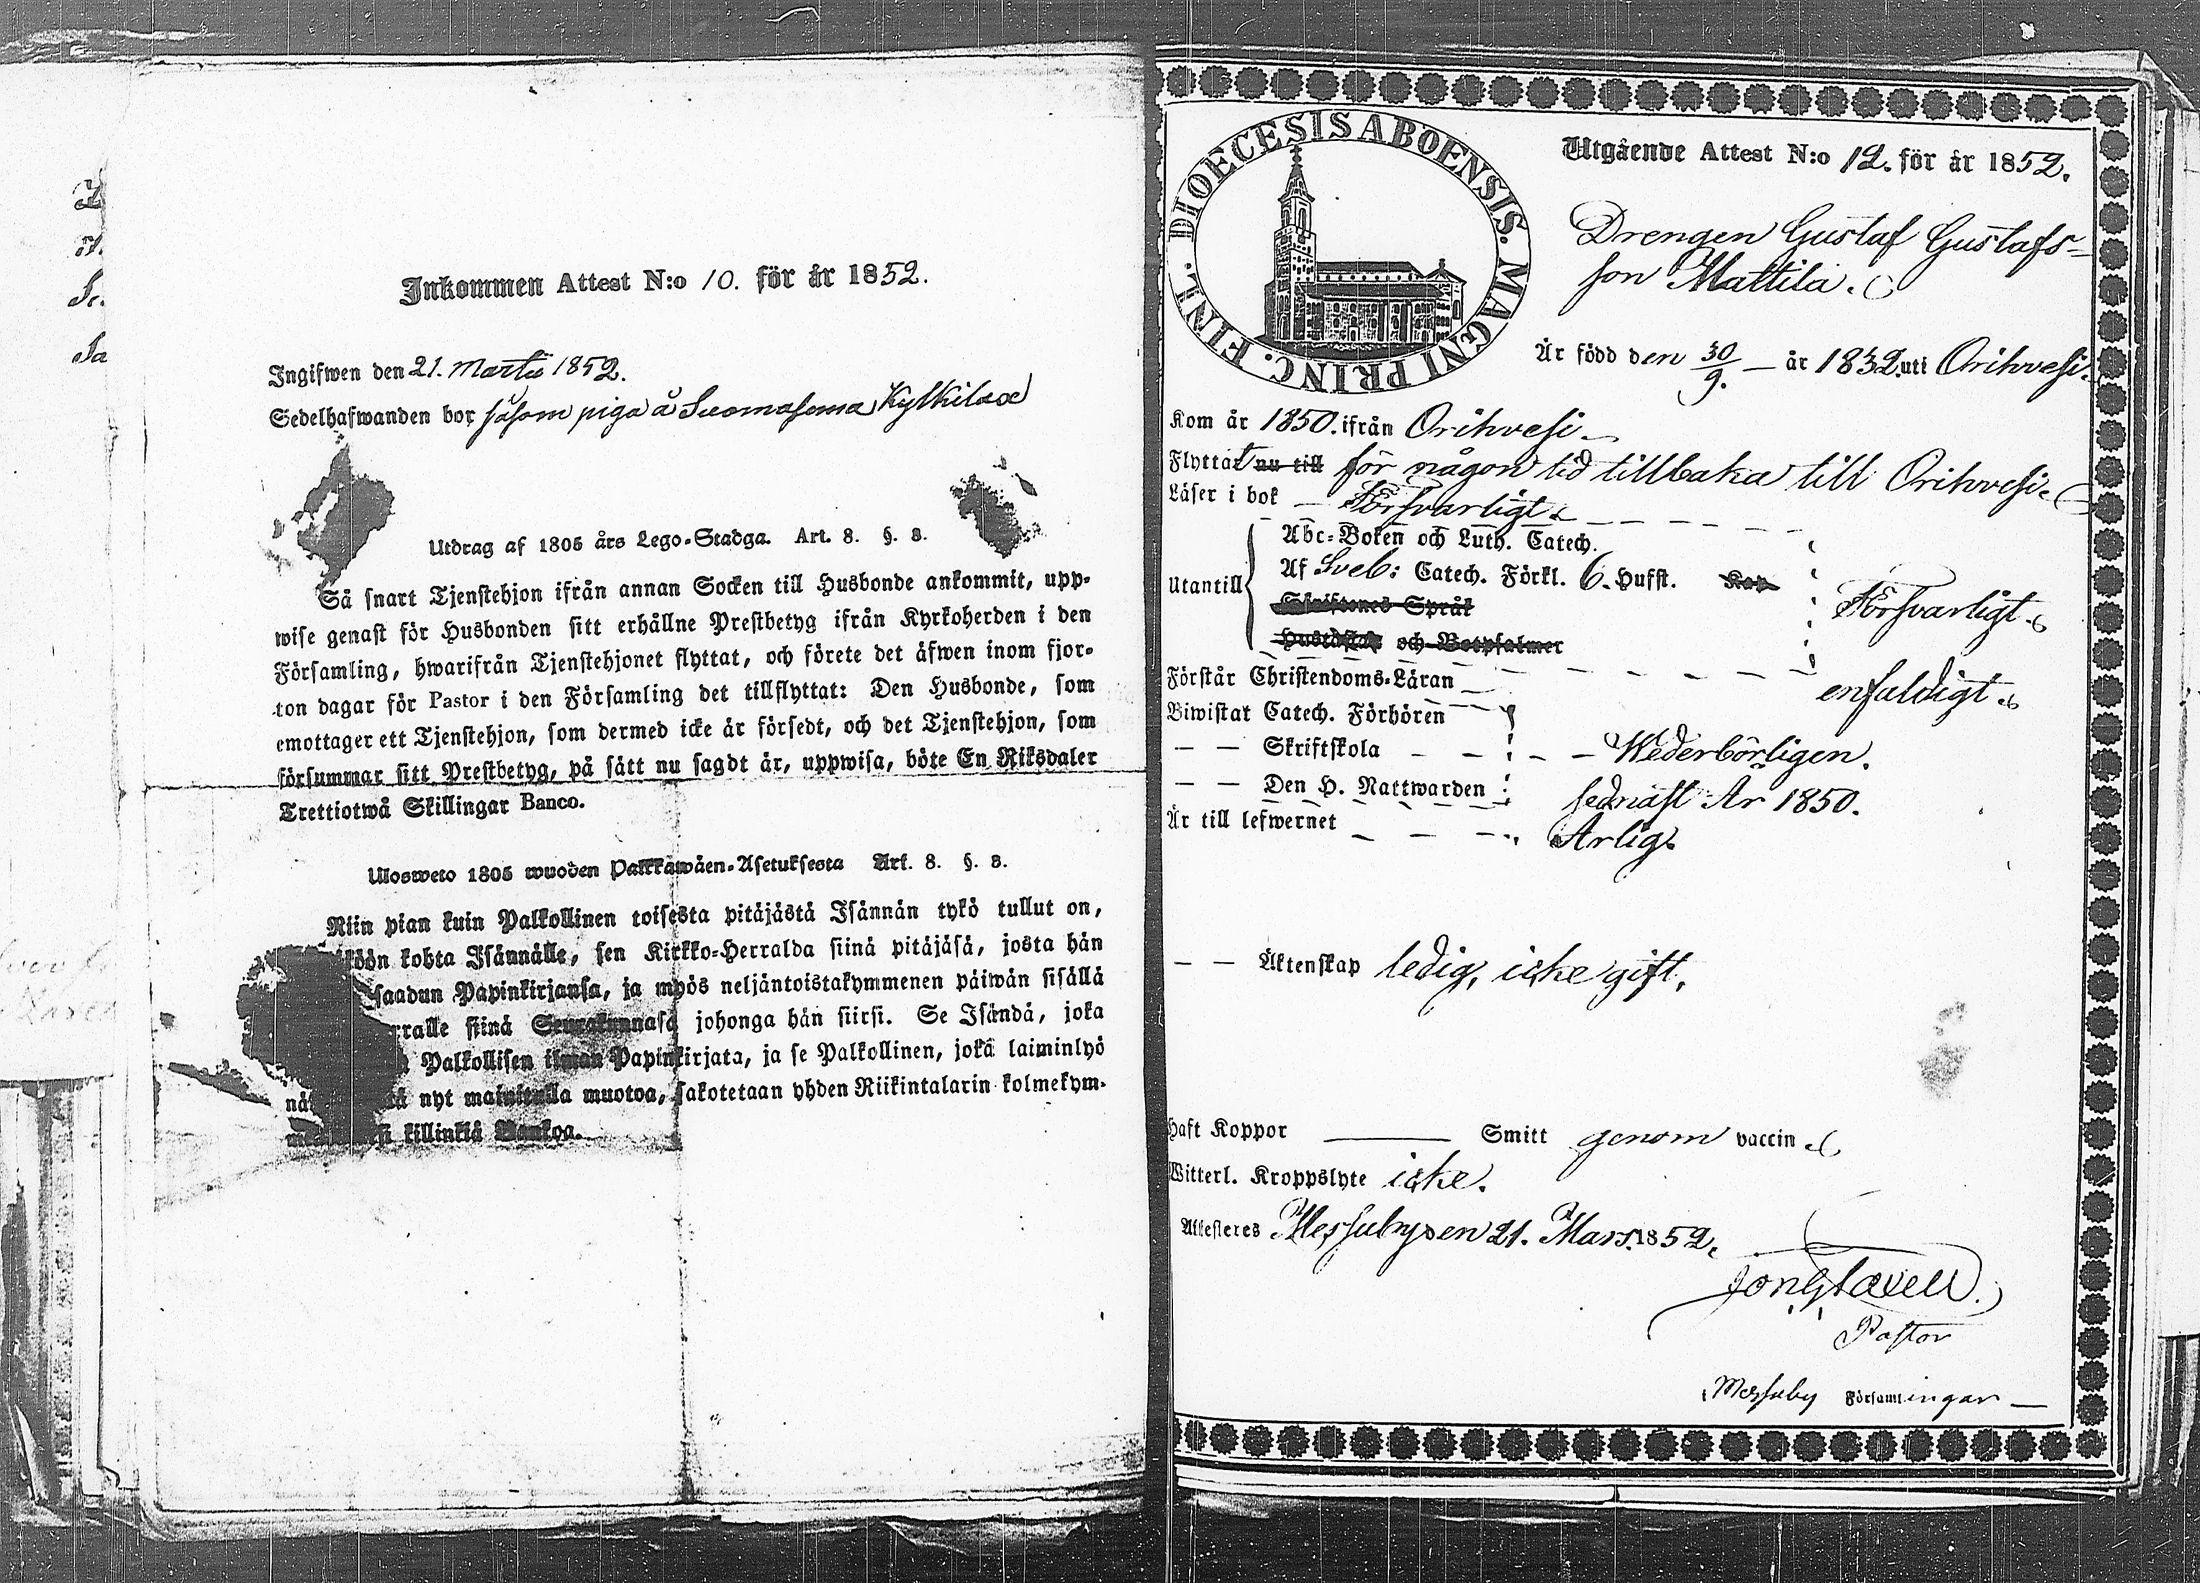 Inkommen Attest N:o 10. för år 1852.
Ingifwen den 21. Martii 1852.
Sedelhafwanden bor såsom piga å Suomasema Kylkilax
Utdrag af 1805 års Lego-Stadga. Art. 8. §. 8.
Så snart Tjenstehjon ifrån annan Socken till Husbonde ankommit, upp-
wise genast för Husbonden sitt erhållne Prestbetyg ifrån Kyrkoherden i den
Församling, hwarifrån Tjenstehjonet flyttat, och förete det äfwen inom fjor-
ton dagar för Pastor i den Församling det tillflyttat: Den Husbonde, som
emottager ett Tjenstehjon, som dermed icke är försedt, och det Tjenstehjon, som
försummar sitt Prestbetyg, på sätt nu sagdt är, uppwisa, böte En Riksdaler
Trettiotwå Skillingar Banco.
Ulosweto 1805 wuoden Palkkawäen-Asetuksesta Art. 8. §. 8.
Niin pian kuin Palkollinen toisesta pitäjästä Isännän tykö tullut on,
köön kohta Isännälle, sen Kirkko-Herralda siinä pitäjäsä, josta hän
saadun Papinkirjansa, ja myös neljäntoistakymmenen päiwän sisällä
rralle siinä Seurakunnasa johonga hän siirsi. Se Isändä, joka
Palkollisen ilman Papinkirjata, ja se Palkollinen, jokä laiminlyö
nä tä nyt mainitulla muotoa, sakotetaan yhden Riikintalarin kolmekym-
si killinkiä Bankoa.
DIOECESIS ABOENSIS. MAGNI PRINC. FINL.
Utgående Attest N:o 12. för år 1852.
Drengen Gustaf Gustafs-
son Mattila.
Är född den 30/9. — år 1832. uti Orihvesi.
Kom år 1850. ifrån Orihvesi
Flyttat nu till för någon tid tillbaka till Orihvesi.
Läser i bok — Försvarligt.
Abc-Boken och Luth. Catech.
Utantill Af Sveb: Catech. Förkl. 6. Hufst. Kap Försvarligt.
Skriftenes Språk
Hustaflan och Botpsalmer
Förstår Christendoms-Läran enfaldigt.
Biwistat Catech. Förhören
— — Skriftskola — — — Wederbörligen.
— — Den H. Nattwarden sednast År 1850.
Är till lefwernet — — — Ärlig.
— — Äktenskap ledig, icke gift.
Haft Koppor ——— Smitt genom vaccin
Witterl. Kroppslyte icke.
Attesteres Messuby den 21. Mars. 1852.
Pastor
Messuby Församlingar —